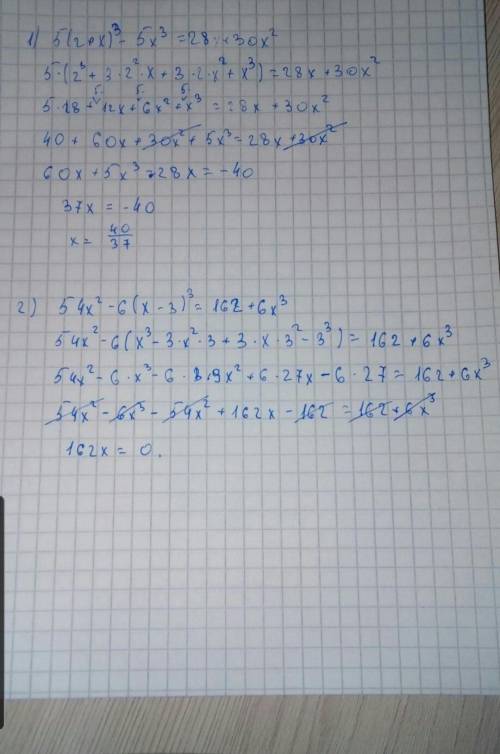 1) 5(2+x)³ - 5x³ = 28x + 30x²
5·(2³ + 3·2²·x + 3·2·x² + x³) = 28x + 30x²
5·8 + 12x + 6x² + x³ = 28x + 30x²
40 + 60x + 30x² + 5x³ = 28x + 30x²
60x + 5x³ - 28x = -40
37x = -40
x = 40/37
2) 54x² - 6(x - 3)³ = 162 + 6x³
54x² - 6(x³ - 3·x²·3 + 3·x·3² - 3³) = 162 + 6x³
54x² - 6·x³ - 6·9x² + 6·27x - 6·27 = 162 + 6x³
54x² - 6x³ - 54x² + 162x - 162 = 162 + 6x³
162x = 0.